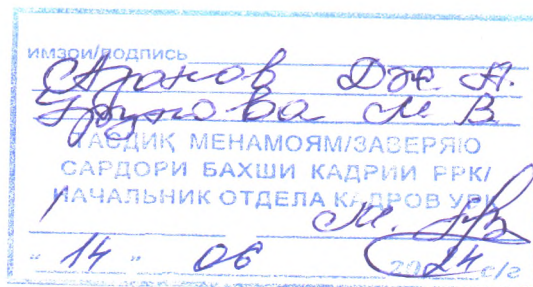 ИМЗОИ/ПОДПИСЬ
Дж. А.
М. В.
ТАСДИҚ МЕНАМОЯМ/ЗАВЕРЯЮ
САРДОРИ БАХШИ КАДРИИ РРК/
НАЧАЛЬНИК ОТДЕЛА КАДРОВ УРК
" 14 " 06 2024 с/г